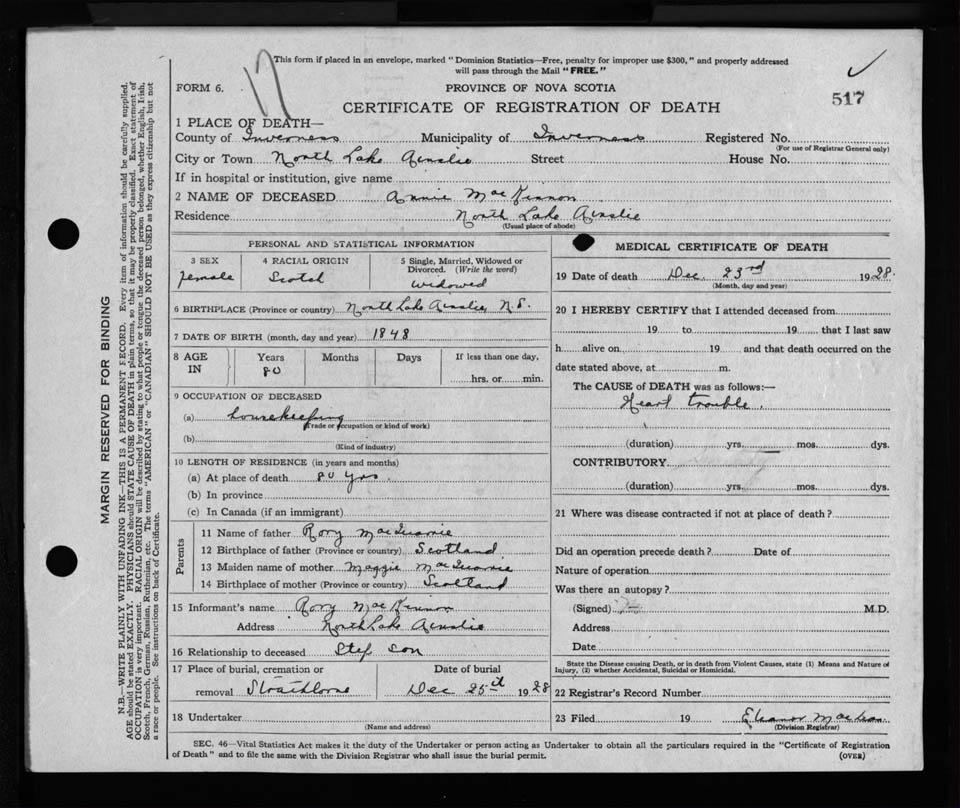 This form if placed in an envelope, marked "Dominion Statistics—Free, penalty for improper use $300," and properly addressed
will pass through the Mail "FREE."
17
FORM 6.
PROVINCE OF NOVA SCOTIA
517
CERTIFICATE OF REGISTRATION OF DEATH
1 PLACE OF DEATH—
County of Inverness Municipality of Inverness Registered No.
(For use of Registrar General only)
City or Town North Lake Ainslie Street House No.
If in hospital or institution, give name
2 NAME OF DECEASED Annie MacKinnon
Residence North Lake Ainslie
(Usual place of abode)
PERSONAL AND STATISTICAL INFORMATION
3 SEX 4 RACIAL ORIGIN 5 Single, Married, Widowed or
Divorced. (Write the word)
female Scotch widowed
6 BIRTHPLACE (Province or country) North Lake Ainslie, N.S.
7 DATE OF BIRTH (month, day and year) 1848
8 AGE IN Years Months Days If less than one day,
80 hrs. or min.
9 OCCUPATION OF DECEASED
(a) housekeeping
(Trade or occupation or kind of work)
(b)
(Kind of industry)
10 LENGTH OF RESIDENCE (in years and months)
(a) At place of death 80 yrs.
(b) In province
(c) In Canada (if an immigrant)
Parents
11 Name of father Rory MacQuarrie
12 Birthplace of father (Province or country) Scotland
13 Maiden name of mother Maggie MacQuarrie
14 Birthplace of mother (Province or country) Scotland
15 Informant's name Rory MacKinnon
Address North Lake Ainslie
16 Relationship to deceased Step son
17 Place of burial, cremation or Date of burial
removal Strathlorne Dec 25th 1928
18 Undertaker
(Name and address)
MEDICAL CERTIFICATE OF DEATH
19 Date of death Dec. 23rd 1928.
(Month, day and year)
20 I HEREBY CERTIFY that I attended deceased from
19 to 19 that I last saw
h alive on 19 and that death occurred on the
date stated above, at m.
The CAUSE of DEATH was as follows:—
Heart trouble.
(duration) yrs. mos. dys.
CONTRIBUTORY
(duration) yrs. mos. dys.
21 Where was disease contracted if not at place of death?
Did an operation precede death? Date of
Nature of operation
Was there an autopsy?
(Signed) M.D.
Address
Date
State the Disease causing Death, or in death from Violent Causes, state (1) Means and Nature of
Injury, (2) whether Accidental, Suicidal or Homicidal.
22 Registrar's Record Number
23 Filed 19 Eleanor MacLean
(Division Registrar)
SEC. 46—Vital Statistics Act makes it the duty of the Undertaker or person acting as Undertaker to obtain all the particulars required in the "Certificate of Registration
of Death" and to file the same with the Division Registrar who shall issue the burial permit. (OVER)
MARGIN RESERVED FOR BINDING
N.B.—WRITE PLAINLY WITH UNFADING INK—THIS IS A PERMANENT RECORD. Every item of information should be carefully supplied.
AGE should be stated EXACTLY. PHYSICIANS should STATE CAUSE OF DEATH in plain terms, so that it may be properly classified. Exact statement of
OCCUPATION is very important. RACIAL ORIGIN will be described by stating to what people or tongue the deceased person belonged, whether English, Irish,
Scotch, French, German, Russian, Ruthenian, etc. The terms "AMERICAN" or "CANADIAN" SHOULD NOT BE USED as they express citizenship but not
a race or people. See instructions on back of Certificate.